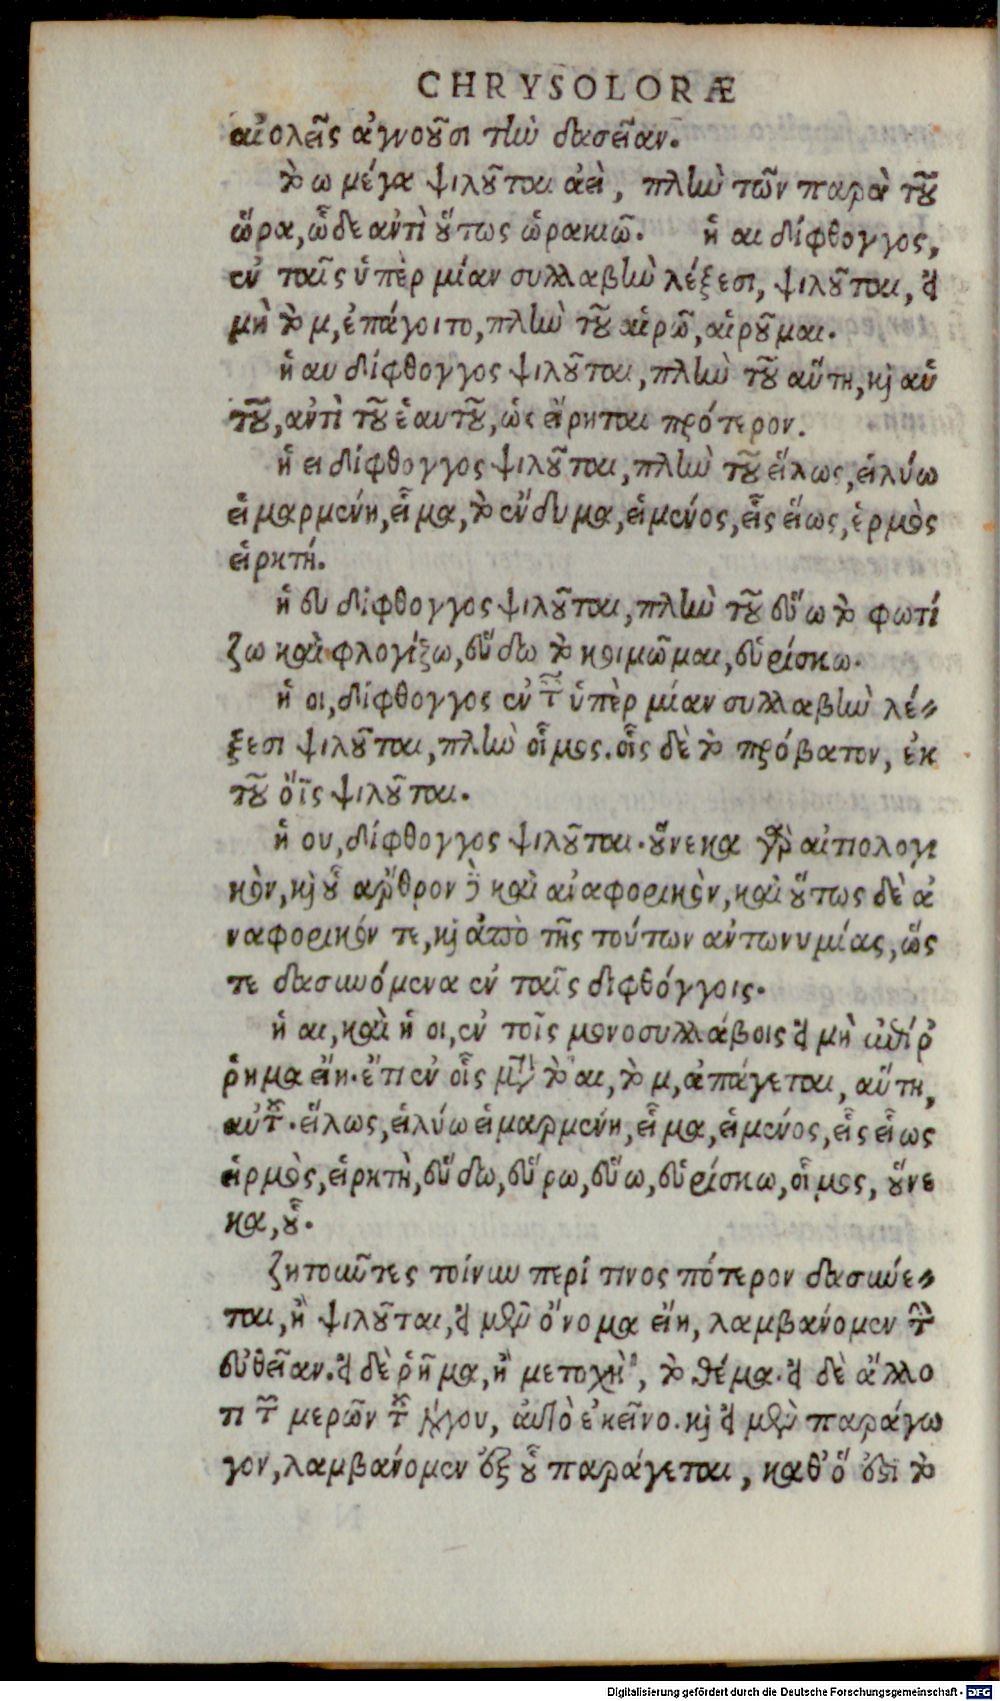 CHRYSOLORÆ
αἰολεῖς ἀγνοοῦσι τὴν δασεῖαν.
τὸ ω μέγα ψιλοῦται ἀεὶ, πλὴν τῶν παρὰ τοῦ
ὥρα, ὧδε ἀντὶ οὕτως ὡρακιῶ. ἡ αι δίφθογγος,
ἐν ταῖς ὑπὲρ μίαν συλλαβὴν λέξεσι, ψιλοῦται, εἰ
μὴ τὸ μ, ἐπάγοιτο, πλὴν τοῦ αἱρῶ, αἱροῦμαι.
ἡ αυ δίφθογγος ψιλοῦται, πλὴν τοῦ αὕτη, καὶ αὑ
τοῦ, ἀντὶ τοῦ ἑαυτοῦ, ὡς εἴρηται πρότερον.
ἡ ει δίφθογγος ψιλοῦται, πλὴν τοῦ εἵλως, εἱλύω
εἱμαρμένη, εἷμα, τὸ ἔνδυμα, εἱμένος, εἷς εἵως, ἑρμὸς
εἱρκτή.
ἡ ευ δίφθογγος ψιλοῦται, πλὴν τοῦ εὕω τὸ φωτί
ζω καὶ φλογίζω, εὕδω τὸ κοιμῶμαι, εὑρίσκω.
ἡ οι, δίφθογγος ἐν ταῖς ὑπὲρ μίαν συλλαβὴν λέ-
ξεσι ψιλοῦται, πλὴν οἷμος. οἷς δὲ τὸ πρόβατον, ἐκ
τοῦ ὄϊς ψιλοῦται.
ἡ ου, δίφθογγος ψιλοῦται. οὕνεκα γὰρ αἰτιολογι
κὸν, καὶ οὗ ἄρθρον καὶ ἀναφορικὸν, καὶ οὕτως δὲ ἀ
ναφορικόν τε, καὶ ἀπὸ τῆς τούτων ἀντωνυμίας, ὥς
τε δασυνόμενα ἐν ταῖς διφθόγγοις.
ἡ αι, καὶ ἡ οι, ἐν τοῖς μονοσυλλάβοις εἰ μὴ ἐπίρ
ρημα εἴη. ἔτι ἐν οἷς μετὰ τὸ αι, τὸ μ, ἐπάγεται, αὕτη,
αὑτοῦ. εἵλως, εἱλύω εἱμαρμένη, εἷμα, εἱμένος, εἷς εἷως
εἱρμὸς, εἱρκτὴ, εὕδω, εὕρω, εὕω, εὑρίσκω, οἷμος, οὕνε
κα, οὗ.
ζητοῦντες τοίνυν περί τινος πότερον δασύνε-
ται, ἢ ψιλοῦται, εἰ μὲν ὄνομα εἴη, λαμβάνομεν τὴν
εὐθεῖαν. εἰ δὲ ῥῆμα, ἢ μετοχὴ, τὸ θέμα. εἰ δὲ ἄλλο
τι τῶν μερῶν τοῦ λόγου, αὐτὸ ἐκεῖνο. καὶ εἰ μὲν παράγω
γον, λαμβάνομεν ἐξ οὗ παράγεται, καθ’ ὅ ἐστι τὸ
Digitalisierung gefördert durch die Deutsche Forschungsgemeinschaft - DFG